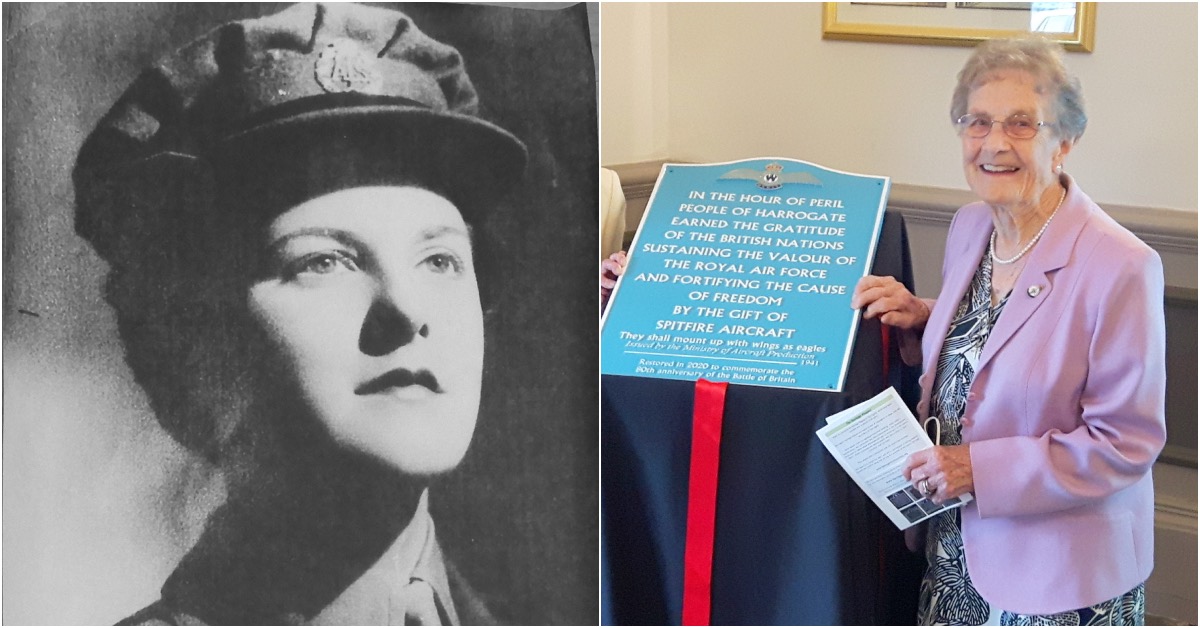 W
IN THE HOUR OF PERIL
PEOPLE OF HARROGATE
EARNED THE GRATITUDE
OF THE BRITISH NATIONS
SUSTAINING THE VALOUR OF
THE ROYAL AIR FORCE
AND FORTIFYING THE CAUSE
OF FREEDOM
BY THE GIFT OF
SPITFIRE AIRCRAFT
They shall mount up with wings as eagles
Issued by the Ministry of Aircraft Production
1941
Restored in 2020 to commemorate the
80th anniversary of the Battle of Britain